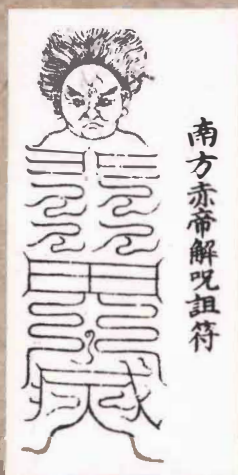 南方赤帝解呪詛符